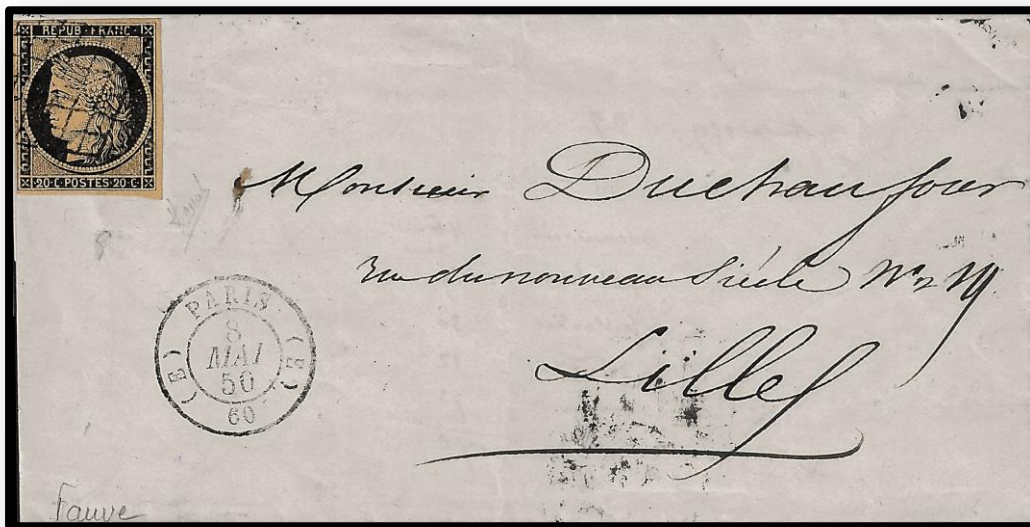 REPUB·FRANC·
20·C·POSTES·20·C·
Monsieur Duchaufour
rue du nouveau Siécle N°
Lille
PARIS
(E) (E)
8
MAI
50
60
Fauve